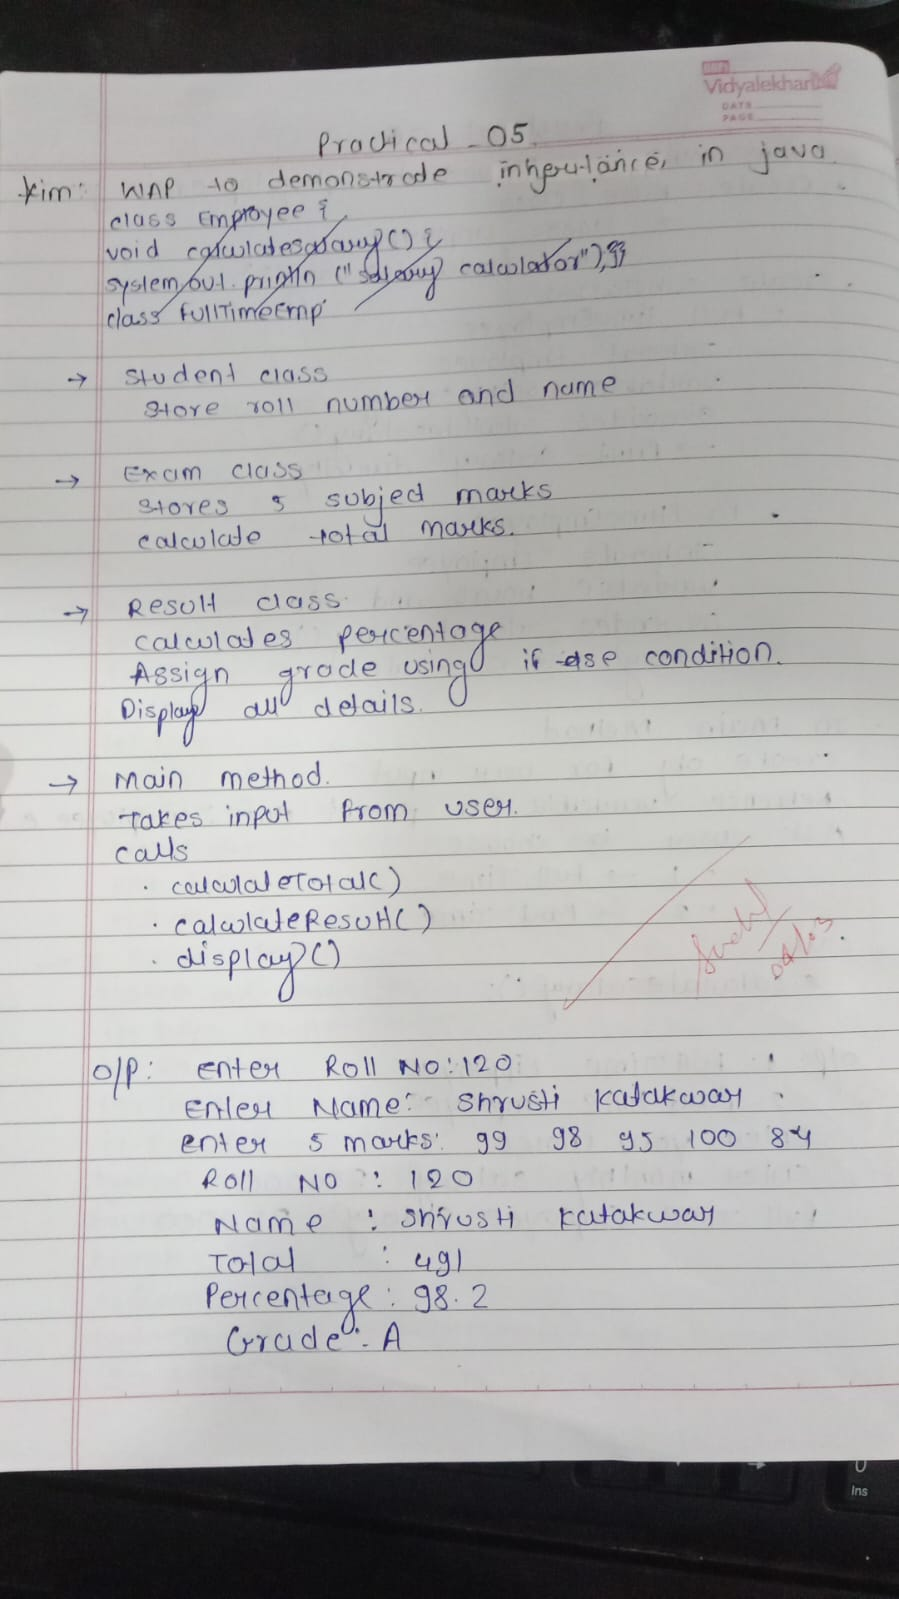 Vidyalekhan
DATE
PAGE
Practical - 05
Aim: WAP to demonstrade inheritance, in java
class Employee {
void calculatesalary() {
system.out.println ("salary calculator");}}
class FullTimeEmp
→ Student class
Store roll number and name
→ Exam class
Stores 5 subject marks
calculate total marks.
→ Result class.
calculates percentage
Assign grade using if else condition.
Display all details.
→ Main method.
Takes input from user.
calls
· calculateTotal()
· calculateResult()
· display()
04/03
O/P: Enter Roll No: 120
Enter Name: Shrusti Katakwar
enter 5 marks: 99 98 95 100 84
Roll No : 120
Name : Shrusti Katakwar
Total : 491
Percentage : 98.2
Grade : A
Ins